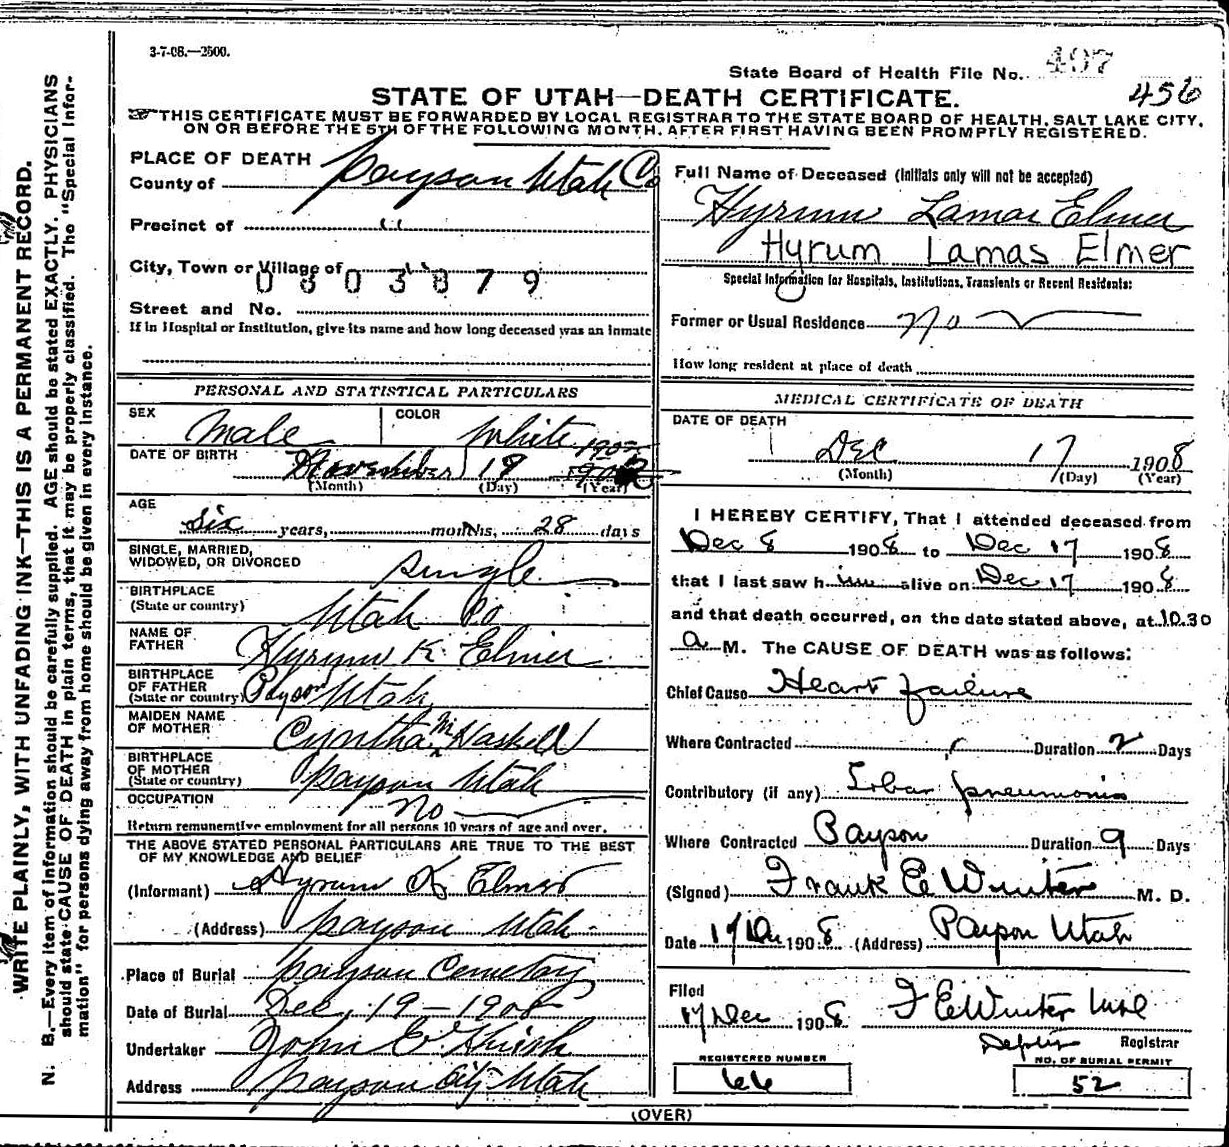 3-7-08.—2500.
State Board of Health File No. 497
456
STATE OF UTAH—DEATH CERTIFICATE.
THIS CERTIFICATE MUST BE FORWARDED BY LOCAL REGISTRAR TO THE STATE BOARD OF HEALTH, SALT LAKE CITY,
ON OR BEFORE THE 5TH OF THE FOLLOWING MONTH, AFTER FIRST HAVING BEEN PROMPTLY REGISTERED.
WRITE PLAINLY, WITH UNFADING INK—THIS IS A PERMANENT RECORD.
N. B.—Every item of information should be carefully supplied. AGE should be stated EXACTLY. PHYSICIANS
should state CAUSE OF DEATH in plain terms, that it may be properly classified. The "Special Infor-
mation" for persons dying away from home should be given in every instance.
PLACE OF DEATH
County of Payson Utah Co
Precinct of "
City, Town or Village of "
0803879
Street and No.
If in Hospital or Institution, give its name and how long deceased was an inmate
PERSONAL AND STATISTICAL PARTICULARS
SEX Male COLOR White
DATE OF BIRTH November 19 1902
(Month) (Day) (Year)
AGE
Six years, months, 28 days
SINGLE, MARRIED,
WIDOWED, OR DIVORCED Single
BIRTHPLACE
(State or country) Utah Co
NAME OF
FATHER Hyrum K. Elmer
BIRTHPLACE
OF FATHER
(State or country) Payson Utah
MAIDEN NAME
OF MOTHER Cyntha M Haskell
BIRTHPLACE
OF MOTHER
(State or country) Payson Utah
OCCUPATION No
Return remunerative employment for all persons 10 years of age and over.
THE ABOVE STATED PERSONAL PARTICULARS ARE TRUE TO THE BEST
OF MY KNOWLEDGE AND BELIEF
(Informant) Hyrum K Elmer
(Address) Payson Utah
Place of Burial Payson Cemetary
Date of Burial Dec. 19 - 1908
Undertaker John E
Address Payson City Utah
Full Name of Deceased (Initials only will not be accepted)
Hyrum Lamar Elmer
Hyrum Lamas Elmer
Special Information for Hospitals, Institutions, Transients or Recent Residents:
Former or Usual Residence No
How long resident at place of death
MEDICAL CERTIFICATE OF DEATH
DATE OF DEATH
Dec 17 1908
(Month) (Day) (Year)
I HEREBY CERTIFY, That I attended deceased from
Dec 8 1908 to Dec 17 1908
that I last saw him alive on Dec 17 1908
and that death occurred, on the date stated above, at 10.30
a M. The CAUSE OF DEATH was as follows:
Chief Cause Heart failure
Where Contracted Duration 2 Days
Contributory (if any) Lobar pneumonia
Where Contracted Payson Duration 9 Days
(Signed) Frank E Winter M. D.
Date 17 Dec 1908 (Address) Payson Utah
Filed
17 Dec 1908 F E Winter
Deputy Registrar
REGISTERED NUMBER
66
NO. OF BURIAL PERMIT
52
(OVER)